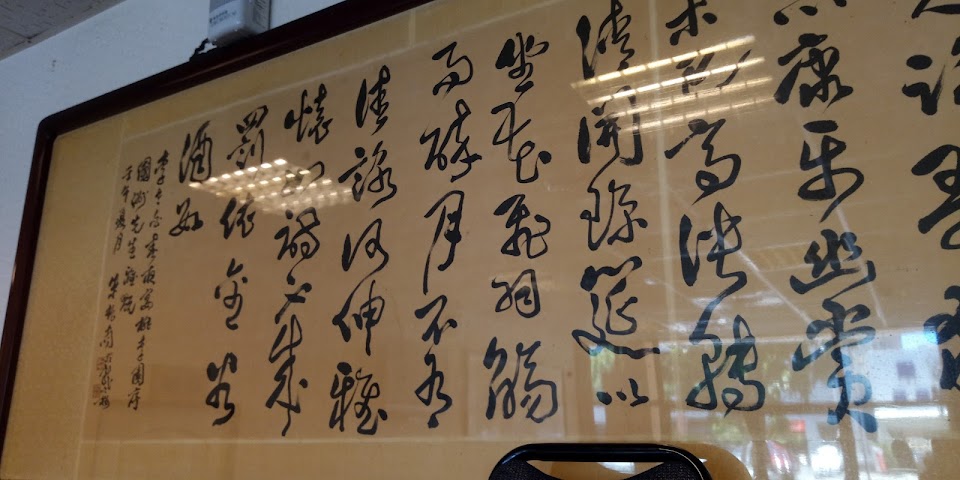 詠
康樂幽賞
未已高談轉
清開瓊筵以
坐花飛羽觴
而醉月不有
佳詠何伸雅
懷如詩不成
罰依金谷
酒數
李太白春夜宴桃李園序
先生雅
壬午夏月